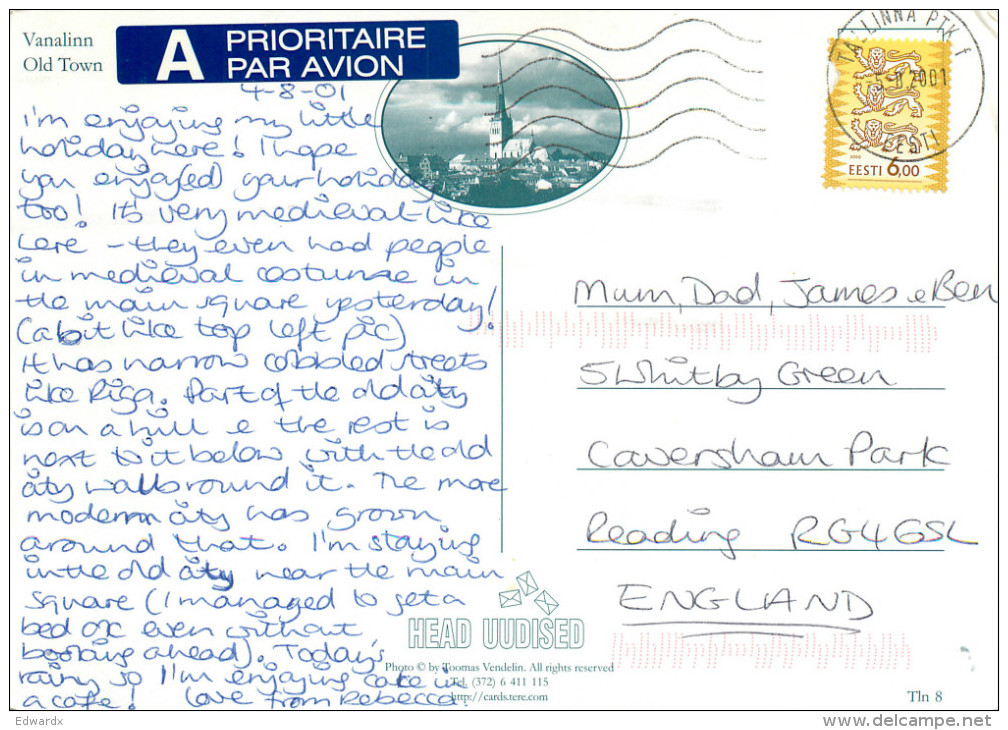 Vanalinn
Old Town
A PRIORITAIRE
PAR AVION
4-8-01
I'm enjoying my little
holiday here! I hope
you enjoy(ed) your holiday
too! It's very medieval-like
here - they even had people
in medieval costume in
the main square yesterday!
(a bit like top left pic)
It has narrow cobbled streets
like Riga. Part of the old city
is on a hill & the rest is
next to it below with the old
city walls round it. The more
modern city has grown
around that. I'm staying
in the old city near the main
square (I managed to get a
bed ok even without
booking ahead). Today's
rainy so I'm enjoying cake in
a cafe! Love from Rebecca.
TALLINNA PTK f
2001
EESTI
EESTI 6,00
Mum, Dad, James & Ben
5 Whitby Green
Caversham Park
Reading RG4 6SL
ENGLAND
HEAD UUDISED
Photo © by Toomas Vendelin. All rights reserved
Tel. (372) 6 411 115
http://cards.tere.com
Tln 8
Edwardx